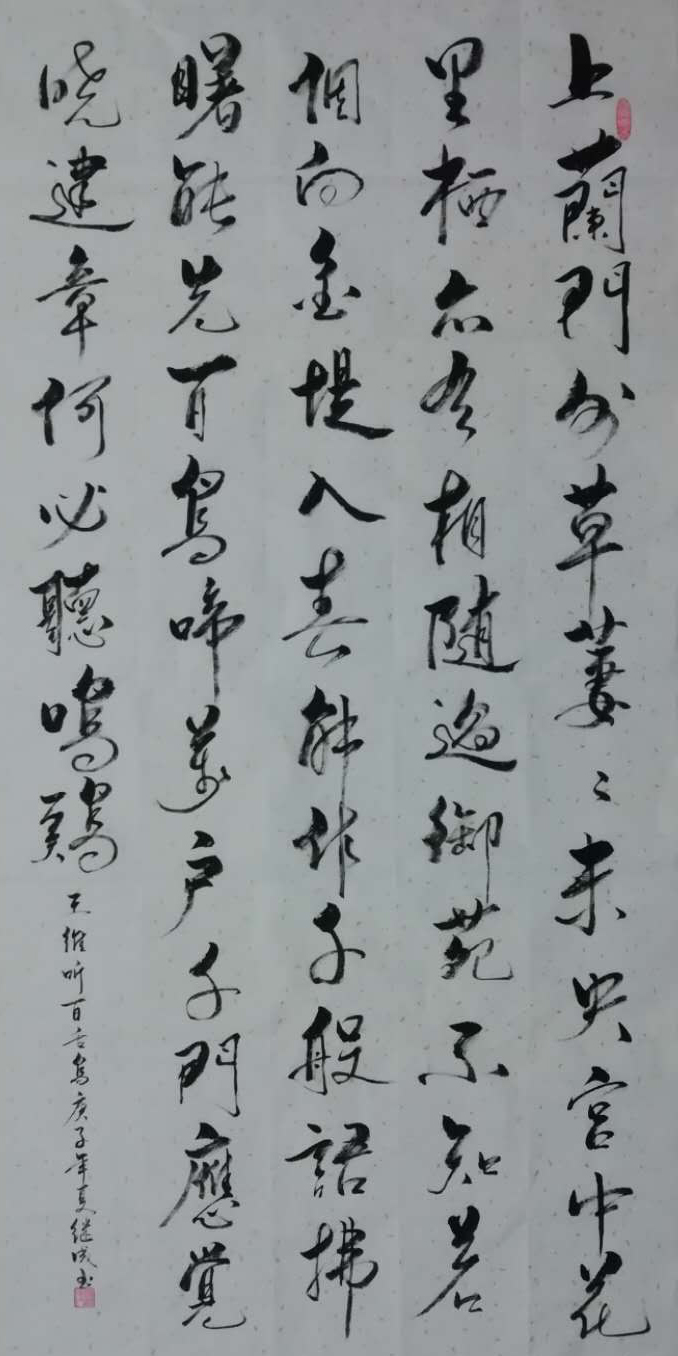 上蘭門外草萋〻未央宮中花
里栖亦有相随過御苑不知若
個向金堤入春解作千般語拂
曙能先百鳥啼萬户千門應覺
晓建章何必聽鳴鷄
王維听百舌鳥庚子年夏继成书